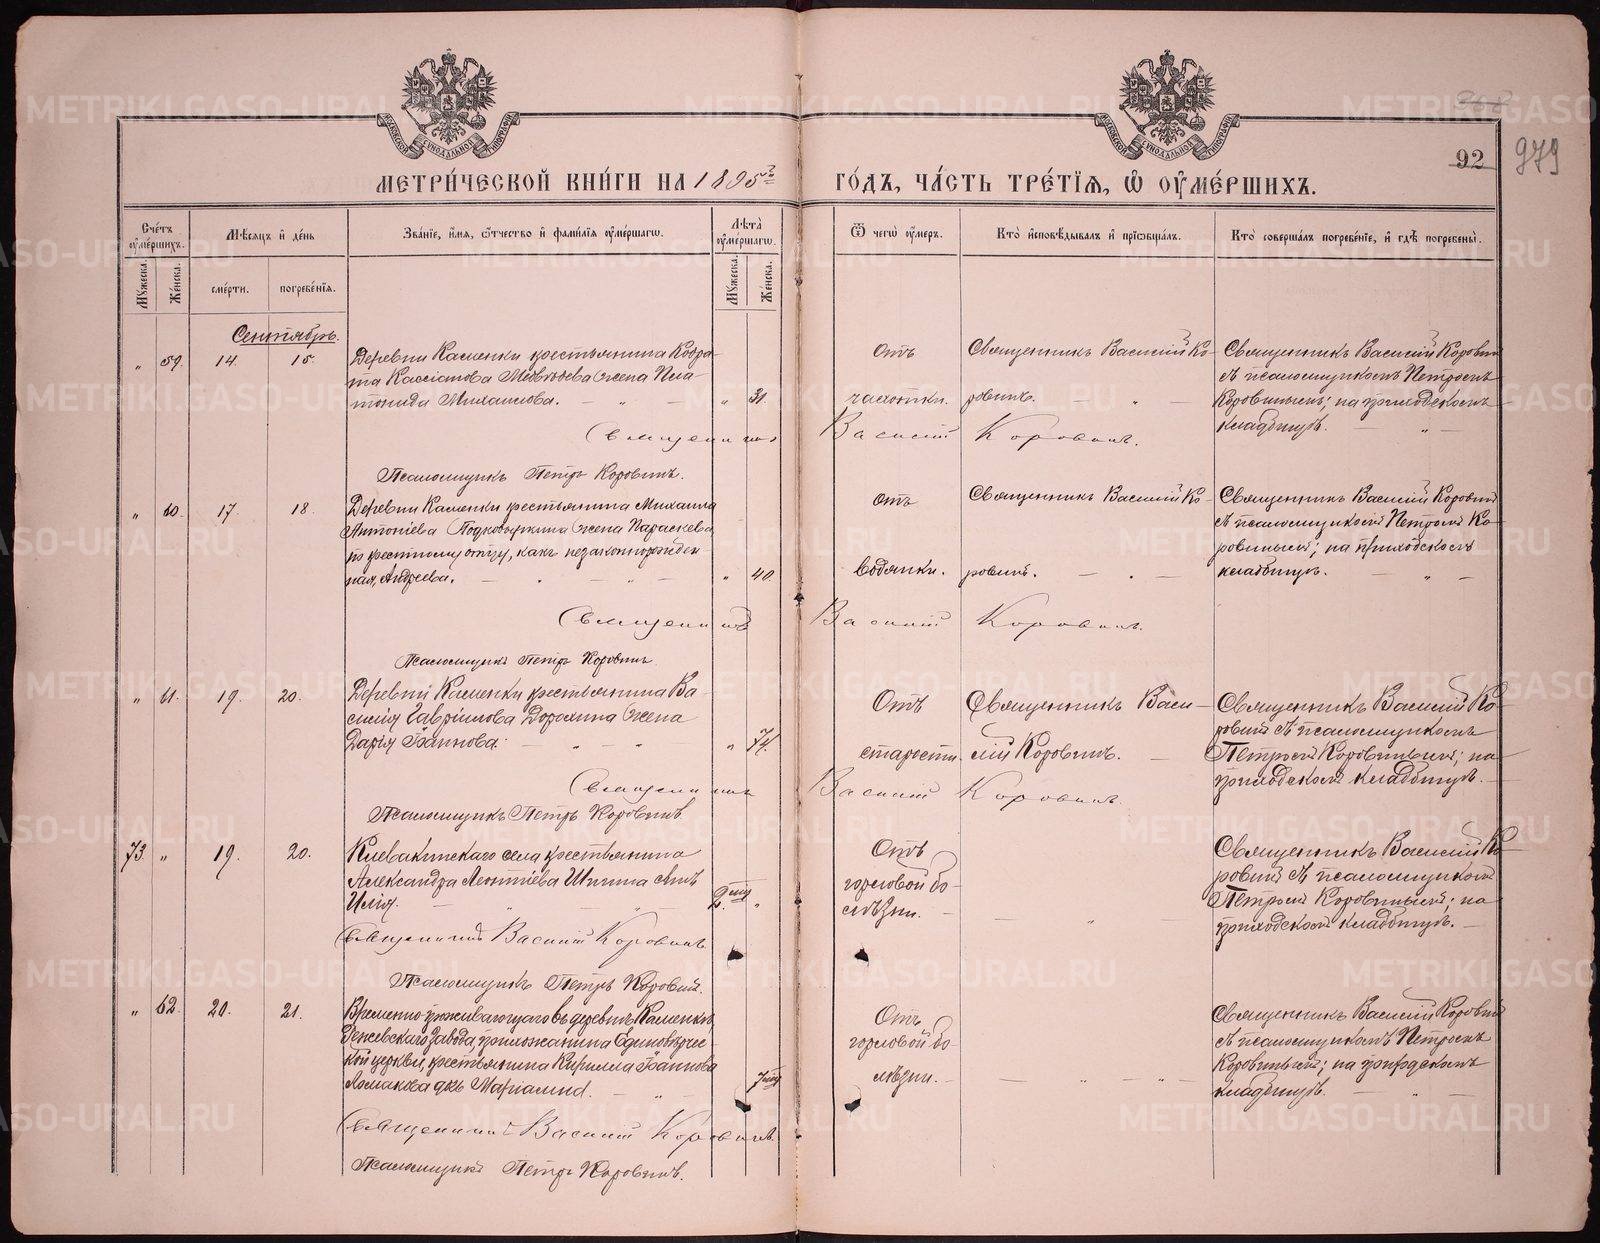 968
92
979
МЕТРИ́ЧЕСКОЙ КНИ́ГИ НА 1895й ГО́ДЪ, ЧА́СТЬ ТРЕ́ТЇѦ, Ѡ ОУМЕ́РШИХЪ.
Сче́тъ оумершихъ.
Мѣсяцъ и де́нь
Зва́нїе, имя, о́тчество и фами́лїя оуме́ршагѡ.
Лѣта оуме́ршагѡ.
Ѿ чегѡ оу́меръ.
Кто̀ исповѣдывалъ и прїѡбща́лъ.
Кто̀ соверша́лъ погребе́нїе, и гдѣ погребены̀.
Му́жеска.
Же́нска.
сме́рти.
погребе́нїя.
Му́жеска.
Же́нска.
Сентябрь.
„ 59. 14. 15.
Деревни Каменки крестьянина Кодра-
та Кассіанова жена Пла-
тонида Михаилова. „ 31.
Отъ
чахотки.
Священникъ Василій Ко-
ровинъ.
Священникъ Василій Коровин
съ псаломщикомъ Петромъ
Коровинымъ; на приходскомъ
кладбищѣ.
Священникъ Василій Коровинъ.
Псаломщикъ Петръ Коровинъ.
„ 60. 17. 18.
Деревни Каменки крестьянина Михаила
Антоніева жена Параскева,
по крестному отцу, какъ незаконнорожден
ная, Андреева. „ 40
Отъ
водянки.
Священникъ Василій Ко-
ровинъ.
Священникъ Василій Коровин
съ псаломщикомъ Петромъ Ко-
ровинымъ; на приходскомъ
кладбищѣ.
Священникъ Василій Коровинъ.
Псаломщикъ Петръ Коровинъ
„ 61. 19. 20.
Деревни Каменки крестьянина Ва-
силія Гавріилова Дорохина жена
Дарія Іоаннова. „ 74.
Отъ
старости.
Священникъ Васи-
лій Коровинъ.
Священникъ Василій Ко-
ровинъ съ псаломщикомъ
Петромъ Коровинымъ; на
приходскомъ кладбищѣ.
Священникъ Василій Коровинъ.
Псаломщикъ Петръ Коровинъ
73. „ 19. 20.
Клевакинскаго села крестьянина
Александра Леонтіева сынъ
Илія. 2. „
Отъ
горловой бо-
лѣзни.
Священникъ Василій Ко-
ровинъ съ псаломщикомъ
Петромъ Коровинымъ; на
приходскомъ кладбищѣ.
Священникъ Василій Коровинъ.
Псаломщикъ Петръ Коровинъ.
„ 62. 20. 21.
Временно-проживающаго въ деревнѣ Каменкѣ,
Режевскаго завода, прихожанина Единовѣрчес-
кой церкви, крестьянина Кирилла Іоаннова
дчь Маріамна.
Отъ
горловой бо-
лѣзни.
Священникъ Василій Коровин
съ псаломщикомъ Петромъ
Коровинымъ; на приходскомъ
кладбищѣ.
Священникъ Василій Коровинъ.
Псаломщикъ Петръ Коровинъ.
METRIKI.GASO-URAL.RU